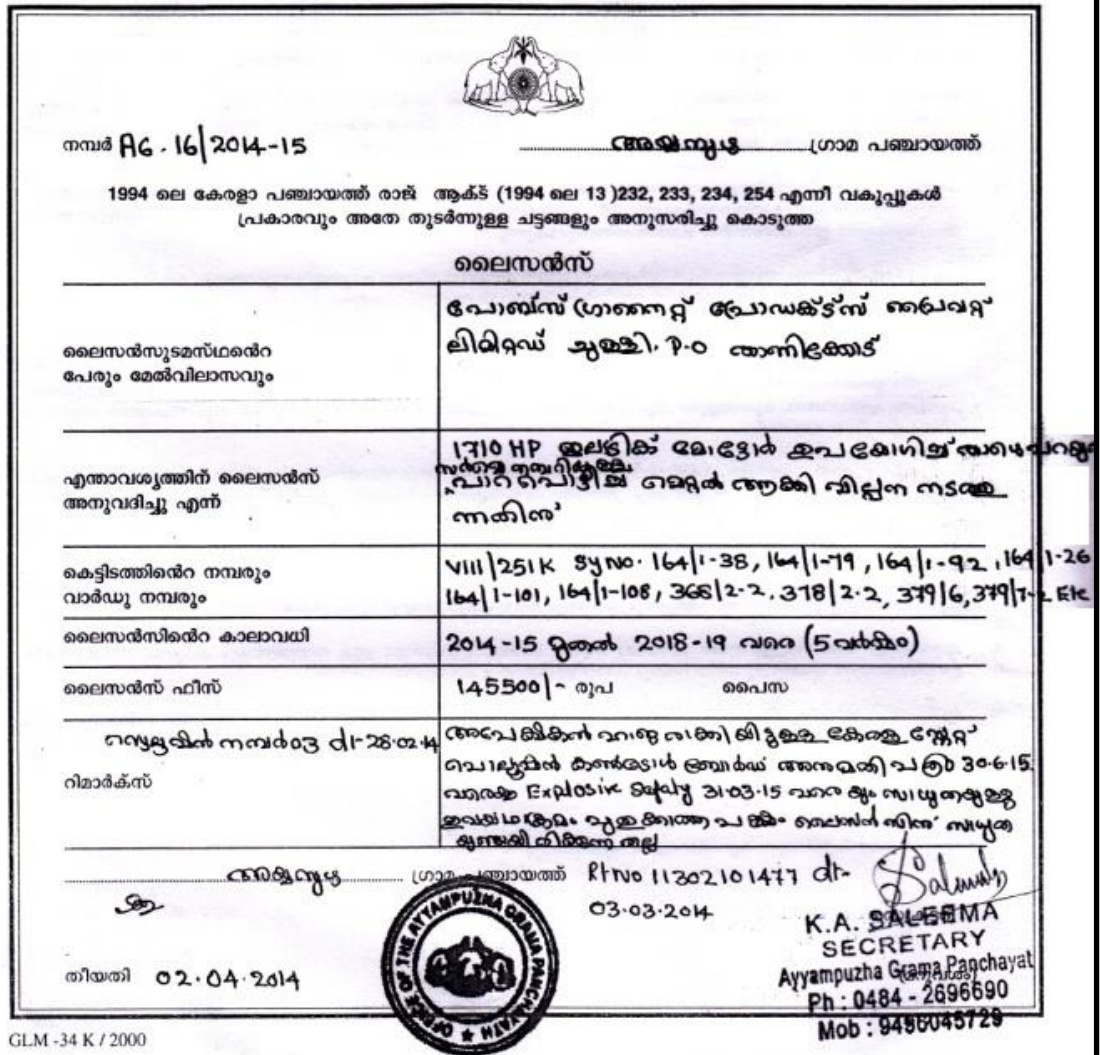 നമ്പർ A6. 16/2014-15
അയ്യമ്പുഴ ഗ്രാമ പഞ്ചായത്ത്
1994 ലെ കേരളാ പഞ്ചായത്ത് രാജ് ആക്ട് (1994 ലെ 13 )232, 233, 234, 254 എന്നീ വകുപ്പുകൾ
പ്രകാരവും അതേ തുടർന്നുള്ള ചട്ടങ്ങളും അനുസരിച്ചു കൊടുത്ത
ലൈസൻസ്
ലൈസൻസുടമസ്ഥൻെറ
പേരും മേൽവിലാസവും
പോബ്സ് ഗ്രാനൈറ്റ് പ്രോഡക്ട്സ് പ്രൈവറ്റ്
ലിമിറ്റഡ് ചുള്ളി. P.O താണിക്കോട്
എന്താവശ്യത്തിന് ലൈസൻസ്
അനുവദിച്ചു എന്ന്
1710 HP ഇലട്രിക് മോട്ടോർ ഉപയോഗിച്ച് താഴെപറയുന്ന
സർവ്വെ നമ്പറിലുള്ള
പാറ പൊട്ടിച്ച് മെറ്റൽ ആക്കി വില്പന നടത്തു
ന്നതിന്
കെട്ടിടത്തിൻെറ നമ്പരും
വാർഡു നമ്പരും
VIII/251K Sy No. 164/1-38, 164/1-79, 164/1-92, 164/1-26
164/1-101, 164/1-108, 365/2-2, 378/2-2, 379/6, 379/7-2 Etc
ലൈസൻസിൻെറ കാലാവധി
2014-15 മുതൽ 2018-19 വരെ (5 വർഷം)
ലൈസൻസ് ഫീസ്
145500/- രൂപ പൈസ
നമ്പർ 03 dt-28.02.14
റിമാർക്സ്
അപേക്ഷകൻ ഹാജരാക്കിയിട്ടുള്ള കേരള സ്റ്റേറ്റ്
പൊല്യൂഷൻ കൺട്രോൾ ബോർഡ് അനുമതി പത്രം 30.6.15
വരെയും Explosive Safety 31.03.15 വരെയും സാധുതയുള്ളതു
ഇവ യഥാക്രമം പുതുക്കാത്ത പക്ഷം ലൈസൻസിന് സാധുത
ഉണ്ടായിരിക്കുന്നതല്ല
അയ്യമ്പുഴ ഗ്രാമ പഞ്ചായത്ത്
Rt No 11302101477 dt-
03.03.2014
തീയതി 02.04.2014
OFFICE OF THE AYYAMPUZHA GRAMA PANCHAYATH
K.A. SALEEMA
SECRETARY
Ayyampuzha Grama Panchayat
Ph : 0484 - 2696690
Mob : 9496045729
GLM -34 K / 2000